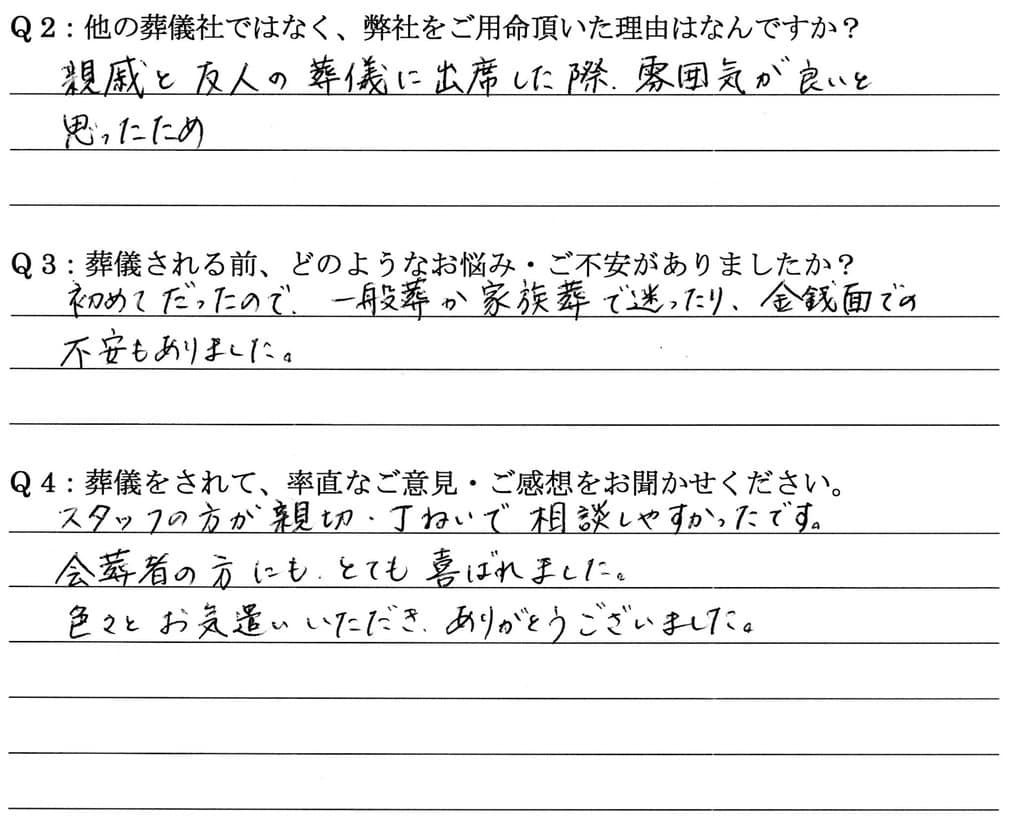 Q2：他の葬儀社ではなく、弊社をご用命頂いた理由はなんですか？
親戚と友人の葬儀に出席した際、雰囲気が良いと
思ったため
Q3：葬儀される前、どのようなお悩み・ご不安がありましたか？
初めてだったので、一般葬か家族葬で迷ったり、金銭面での
不安もありました。
Q4：葬儀をされて、率直なご意見・ご感想をお聞かせください。
スタッフの方が親切・丁ねいで相談しやすかったです。
会葬者の方にも、とても喜ばれました。
色々とお気遣いいただき、ありがとうございました。